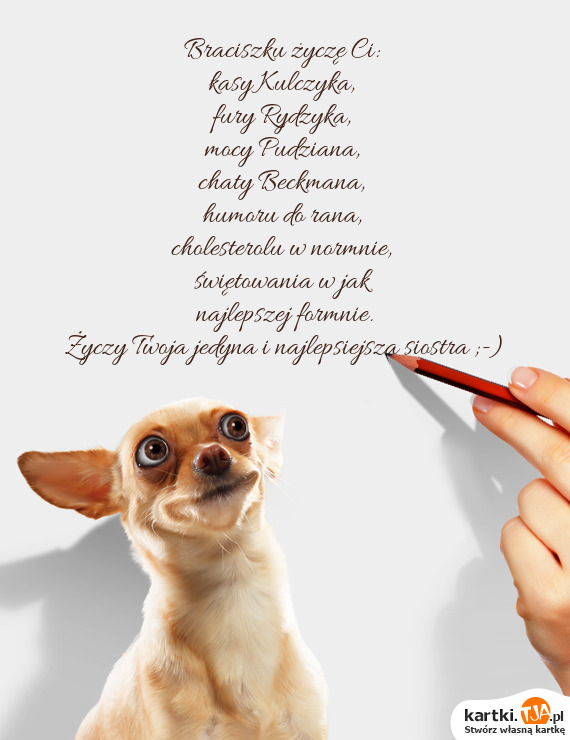 Braciszku życzę Ci:
kasy Kulczyka,
fury Rydzyka,
mocy Pudziana,
chaty Beckmana,
humoru do rana,
cholesterolu w normnie,
świętowania w jak
najlepszej formnie.
Życzy Twoja jedyna i najlepsiejsza siostra ;-)
kartki.TJA.pl
Stwórz własną kartkę